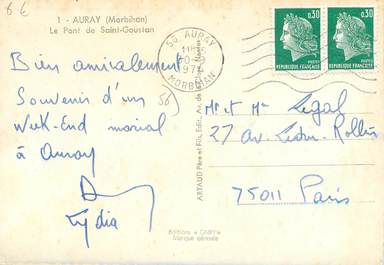 8 €
1 - AURAY (Morbihan)
Le Pont de Saint-Goustan
56 AURAY
MORBIHAN
0,30
REPUBLIQUE FRANÇAISE
0,30
REPUBLIQUE FRANÇAISE
Bien amicalement
Souvenir d'un
Week-End
à Auray
Lydia
56
ARTAUD Père et Fils, Edit.
Mr et Mme Legal
27 Av. Ledru-Rollin
75011 Paris
Editions « GABY »
Marque déposée